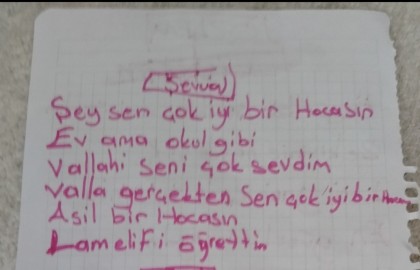 (Şevval)
Şey sen çok iyi bir Hocasın
Ev ama okul gibi
Vallahi seni çok sevdim
Valla gerçekten Sen çok iyi bir Hocasın
Asil bir Hocasın
Lamelifi öğrettin